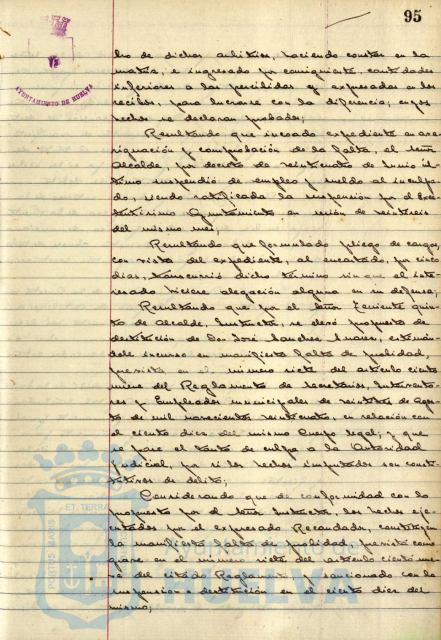 95
AYUNTAMIENTO DE HUELVA
bro de dichos arbitrios, haciendo constar en la
matriz, e ingresado por consiguiente, cantidades
inferiores a las percibidas y expresadas en los
recibos, para lucrarse con la diferencia; cuyos
hechos se declaran probados;
Resultando que incoado expediente en ave-
riguación y comprobación de la falta, el señor
Alcalde, por decreto de veinticuatro de Junio úl-
timo suspendió de empleo y sueldo al inculpa-
do, siendo ratificada la suspensión por el Exce-
lentísimo Ayuntamiento en sesión de veintiseis
del mismo mes;
Resultando que formulado pliego de cargos,
con vista del expediente, al encartado, por cinco
dias, transcurrió dicho término sin que el inte-
resado hiciere alegación alguna en su defensa;
Resultando que por el señor Teniente quin-
to de Alcalde, Instructor, se elevó propuesta de
destitución de Don José Sanchez Suarez, estimán-
dole incurso en manifiesta falta de probidad,
prevista en el número siete del artículo ciento
nueve del Reglamento de Secretarios, Intervento-
res y Empleados municipales de veintitres de Agos-
to de mil novecientos veinticuatro, en relación con
el ciento diez del mismo Cuerpo legal; y que
se pase el tanto de culpa a la Autoridad
judicial, por si los hechos imputados son consti-
tutivos de delito;
Considerando que de conformidad con lo
propuesto por el señor Instructor, los hechos eje-
cutados por el expresado Recaudador, constituyen
la manifiesta falta de probidad, prevista como
grave en el número siete del artículo ciento nue-
ve del citado Reglamento y sancionado con la
suspension o destitución en el ciento diez del
mismo;
PORTUS MARIS ET TERRAE
Ayuntamiento de
HUELVA